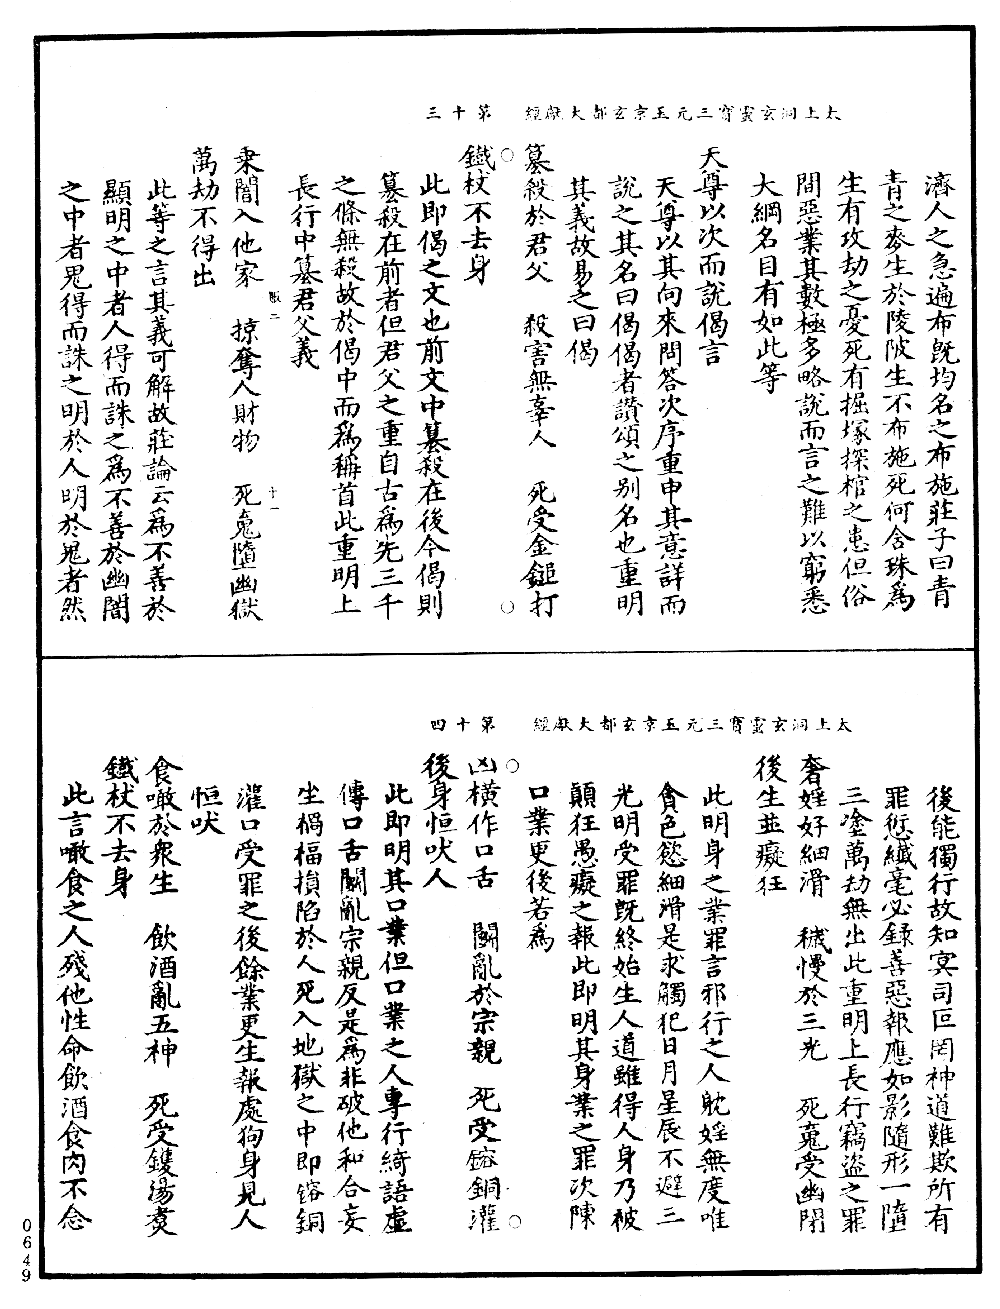 太上洞玄靈寶三元玉京玄都大獻經　第十三
濟人之急遍布旣均名之布施莊子曰青
青之麥生於陵陂生不布施死何含珠爲
生有攻劫之憂死有掘塚探棺之患但俗
間惡業其數極多略說而言之難以窮悉
大綱名目有如此等
天尊以次而說偈言
天尊以其向來問答次序重申其意詳而
說之其名曰偈偈者讚頌之別名也重明
其義故易之曰偈
篡殺於君父　殺害無辜人　死受金鎚打
鐵杖不去身
此即偈之文也前文中篡殺在後今偈則
篡殺在前者但君父之重自古爲先三千
之條無殺故於偈中而爲稱首此重明上
長行中篡君父義
乘闇入他家　掠奪人財物　死䰟墮幽獄
萬劫不得出
此等之言其義可解故莊論云爲不善於
顯明之中者人得而誅之爲不善於幽闇
之中者鬼得而誅之明於人明於鬼者然
太上洞玄靈寶三元玉京玄都大獻經　第十四
後能獨行故知冥司叵罔神道難欺所有
罪愆纖毫必録善惡報應如影隨形一墮
三塗萬劫無出此重明上長行竊盜之罪
奢婬好細滑　穢慢於三光　死䰟受幽閉
後生並癡狂
此明身之業罪言邪行之人躭婬無度唯
貪色慾細滑是求觸犯日月星辰不避三
光明受罪旣終始生人道雖得人身乃被
顛狂愚癡之報此即明其身業之罪次陳
口業更後若爲
凶橫作口舌　鬭亂於宗親　死受鎔銅灌
後身恒吠人
此即明其口業但口業之人專行綺語虛
傳口舌鬭亂宗親反是爲非破他和合妄
生禍福損陷於人死入地獄之中即鎔銅
灌口受罪之後餘業更生報處狗身見人
恒吠
食噉於衆生　飲酒亂五神　死受鑊湯煑
鐵杖不去身
此言噉食之人殘他性命飲酒食肉不念
0649